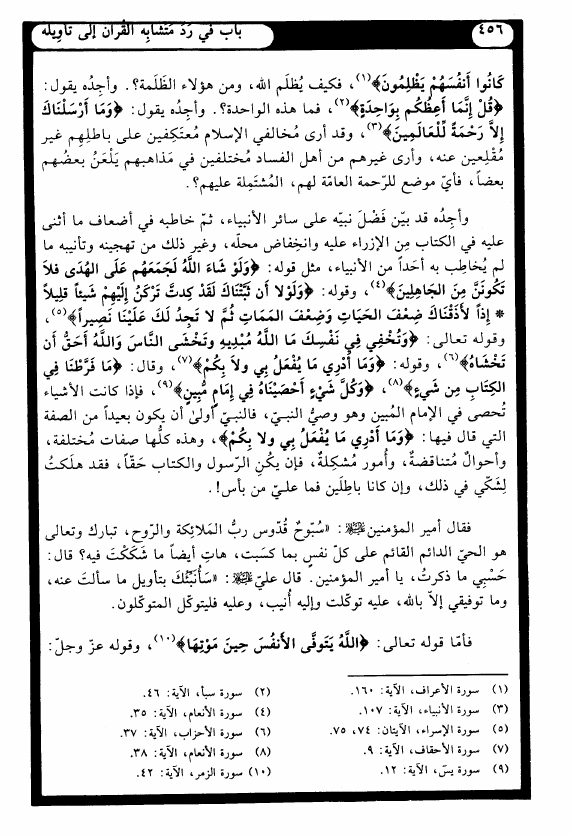 ٤٥٦
باب في رَدّ مُتشابِه القُرآن إلى تأوِيله
كَانُوا أَنفُسَهُمْ يَظْلِمُونَ﴾(١)، فكيف يُظلَم الله، ومن هؤلاء الظَلَمة؟. وأجِدُه يقول:
﴿قُلْ إِنَّمَا أَعِظُكُم بِوَاحِدَةٍ﴾(٢)، فما هذه الواحدة؟. وأجِدُه يقول: ﴿وَمَا أَرْسَلْنَاكَ
إِلاَّ رَحْمَةً لِّلْعَالَمِينَ﴾(٣)، وقد أرى مُخالفي الإسلام مُعتَكِفين على باطلِهم غير
مُقْلِعين عنه، وأرى غيرهم من أهل الفساد مُختلفين في مَذاهبهم يَلْعَنُ بعضُهم
بعضاً، فأيّ موضع للرحمة العامّة لهم، المُشتَمِلة عليهم؟.
وأجِدُه قد بيّن فَضْلَ نبيّه على سائر الأنبياء، ثمّ خاطبه في أضعاف ما أثنى
عليه في الكتاب مِن الإزراء عليه وانخِفاض محلّه، وغير ذلك من تهجينه وتأنيبه ما
لم يُخاطِب به أحَداً من الأنبياء، مثل قوله: ﴿وَلَوْ شَاءَ اللَّهُ لَجَمَعَهُم عَلَى الْهُدَى فلاَ
تَكُونَنَّ مِنَ الجَاهِلِينَ﴾(٤)، وقوله: ﴿وَلَوْلا أَن ثَبَّتْنَاكَ لَقَدْ كِدتَّ تَرْكَنُ إِلَيْهِمْ شَيئاً قليلاً
* إِذاً لأَذَقْنَاكَ ضِعْفَ الحَيَاتِ وَضِعْفَ المَمَاتِ ثُمَّ لا تَجدُ لَكَ عَلَيْنَا نَصِيراً﴾(٥)،
وقوله تعالى: ﴿وَتُخْفِي فِي نَفْسِكَ مَا اللَّهُ مُبْدِيهِ وَتَخْشَى النَّاسَ وَاللَّهُ أَحَقُّ أَن
تَخْشَاهُ﴾(٦)، وقوله: ﴿وَمَا أَدْرِي مَا يُفْعَلُ بِي ولاَ بِكُمْ﴾(٧)، وقال: ﴿مَا فَرَّطْنَا فِي
الكِتَابِ مِن شَيءٍ﴾(٨)، ﴿وَكُلَّ شَيْءٍ أَحْصَيْنَاهُ فِي إِمَامٍ مُّبِينٍ﴾(٩)، فإذا كانت الأشياء
تُحصى في الإمام المُبين وهو وصيُّ النبيّ، فالنبيّ أولىٰ أن يكون بعيداً من الصفة
التي قال فيها: ﴿وَمَا أَدْرِي مَا يُفْعَلُ بِي ولا بِكُمْ﴾، وهذه كلُّها صفات مُختلفة،
وأحوالٌ مُتناقضةٌ، وأُمور مُشكِلةٌ، فإن يكُنِ الرسول والكتاب حَقّاً، فقد هلَكتُ
لِشَكّي في ذلك، وإن كانا باطِلَين فما عليّ من بأس!.
فقال أمير المؤمنين ﷺ: «سُبّوحٌ قُدّوس ربُّ المَلائكة والرّوح، تبارك وتعالى
هو الحيّ الدائم القائم على كلّ نفسٍ بما كسَبت، هاتِ أيضاً ما شَكَكْتَ فيه؟ قال:
حَسْبِي ما ذكرتُ، يا أمير المؤمنين. قال عليّ ﷺ: «سَأُنَبِّئُكَ بتأويل ما سألتَ عنه،
وما توفيقي إلاّ بالله، عليه توكّلت وإليه أُنيب، وعليه فليتوكّل المتوكّلون.
فأمّا قوله تعالى: ﴿اللَّهُ يَتَوفَّى الأَنفُسَ حِينَ مَوْتِهَا﴾(١٠)، وقوله عزّ وجلّ:
(١) سورة الأعراف، الآية: ١٦٠.
(٢) سورة سبأ، الآية: ٤٦.
(٣) سورة الأنبياء، الآية: ١٠٧.
(٤) سورة الأنعام، الآية: ٣٥.
(٥) سورة الإسراء، الآيتان: ٧٤، ٧٥.
(٦) سورة الأحزاب، الآية: ٣٧.
(٧) سورة الأحقاف، الآية: ٩.
(٨) سورة الأنعام، الآية: ٣٨.
(٩) سورة يسۤ، الآية: ١٢.
(١٠) سورة الزمر، الآية: ٤٢.